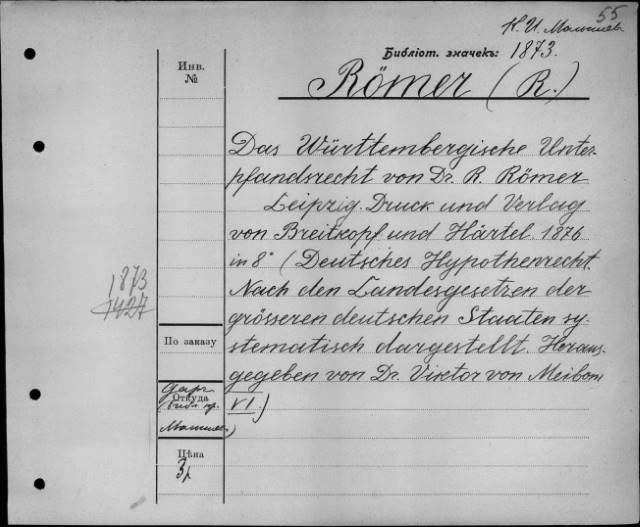 55
К. И. Малышев
Библіот. значекъ: 1873.
Инв.
№
Römer (R.)
Das Württembergische Unter-
pfandsrecht von Dr. R. Römer
Leipzig. Druck und Verlag
von Breitkopf und Härtel. 1876
in 8° (Deutsches Hypothenrecht.
Nach den Landesgesetzen der
grösseren deutschen Staaten sy-
stematisch dargestellt. Heraus-
gegeben von Dr. Viktor von Meibom
VI.)
1873
1427
По заказу
Откуда
Даръ
Малышев.)
Цѣна
3р